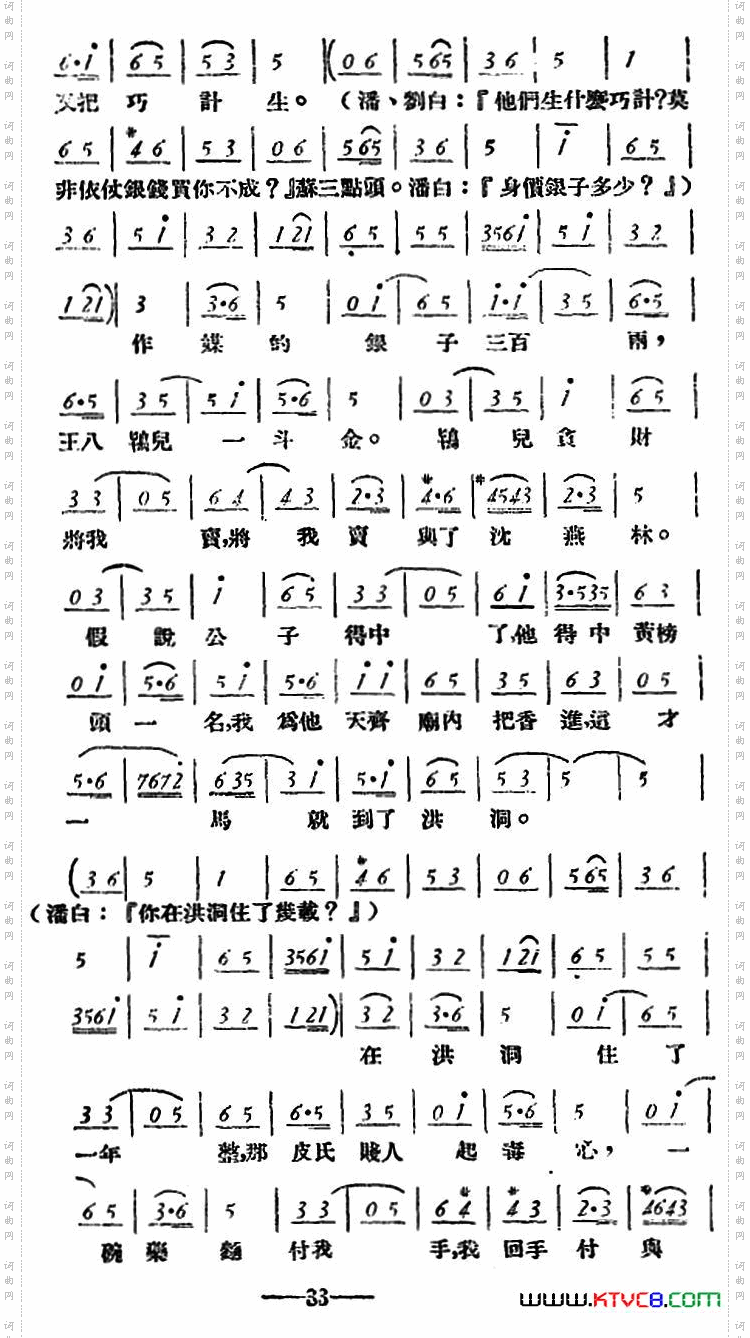 6·i | 6 5 | 5 3 | 5 |( 0 6 | 5 65 | 3 6 | 5 | 1 |
又把 巧 計 生。(潘、劉白：『他們生什麼巧計?莫
6 5 | #4 6 | 5 3 | 0 6 | 5 65 | 3 6 | 5 | i | 6 5 |
非依仗銀錢買你不成？』蘇三點頭。潘白：『身價銀子多少？』)
3 6 | 5 i | 3 2 | 1 21 | 6 5 | 5 5 | 356i | 5 i | 3 2 |
1 21)| 3 | 3·6 | 5 | 0 i | 6 5 | i·i | 3 5 | 6·5 |
作 媒 的 銀 子 三百 兩，
6·5 | 3 5 | 5 i | 5·6 | 5 | 0 3 | 3 5 | i | 6 5 |
王八 鴇兒 一 斗 金。 鴇 兒 貪 財
3 3 | 0 5 | 6 4 | 4 3 | 2·3 | #4·6 | #4543 | 2·3 | 5 |
將我 賣,將 我 賣 與了 沈 燕 林。
0 3 | 3 5 | i | 6 5 | 3 3 | 0 5 | 6 i | 3·535 | 6 3 |
假 說 公 子 得中 了,他 得 中 黃榜
0 i | 5·6 | 5 i | 5·6 | i i | 6 5 | 3 5 | 6 3 | 0 5 |
頭 一 名,我 爲他 天齊 廟內 把香 進,這 才
5·6 | 7672 | 635 | 3 i | 5·i | 6 5 | 5 3 | 5 | 5 |
一 馬 就 到了 洪 洞。
(3 6 | 5 | 1 | 6 5 | #4 6 | 5 3 | 0 6 | 5 65 | 3 6 |
(潘白：『你在洪洞住了幾載？』)
5 | i | 6 5 | 356i | 5 i | 3 2 | 1 21 | 6 5 | 5 5 |
356i | 5 i | 3 2 | 1 21)| 3 2 | 3·6 | 5 | 0 i | 6 5 |
在 洪 洞 住 了
3 3 | 0 5 | 6 5 | 6·5 | 3 5 | 0 i | 5·6 | 5 | 0 i |
一年 整,那 皮氏 賤人 起 毒 心， 一
6 5 | 3·6 | 5 | 3 3 | 0 5 | 6 #4 | #4 3 | 2·3 | #4643 |
碗 藥 麵 付我 手,我 回手 付 與
— 33 —
www.KTVC8.com